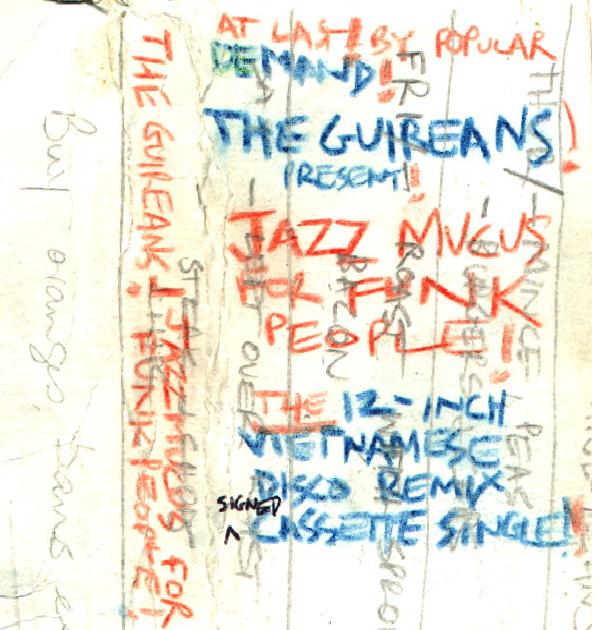 AT LAST! BY POPULAR
DEMAND!
THE GUIREANS!
PRESENT!
JAZZ MUCUS
FOR FUNK
PEOPLE!
THE 12-INCH
VIETNAMESE
DISCO REMIX
SIGNED
^ CASSETTE SINGLE!
THE GUIREANS! JAZZ MUCUS FOR
FUNK PEOPLE!
Buy oranges
FRI
ROAST
BURGERS
MINCE
PEAS
BACON
OVER